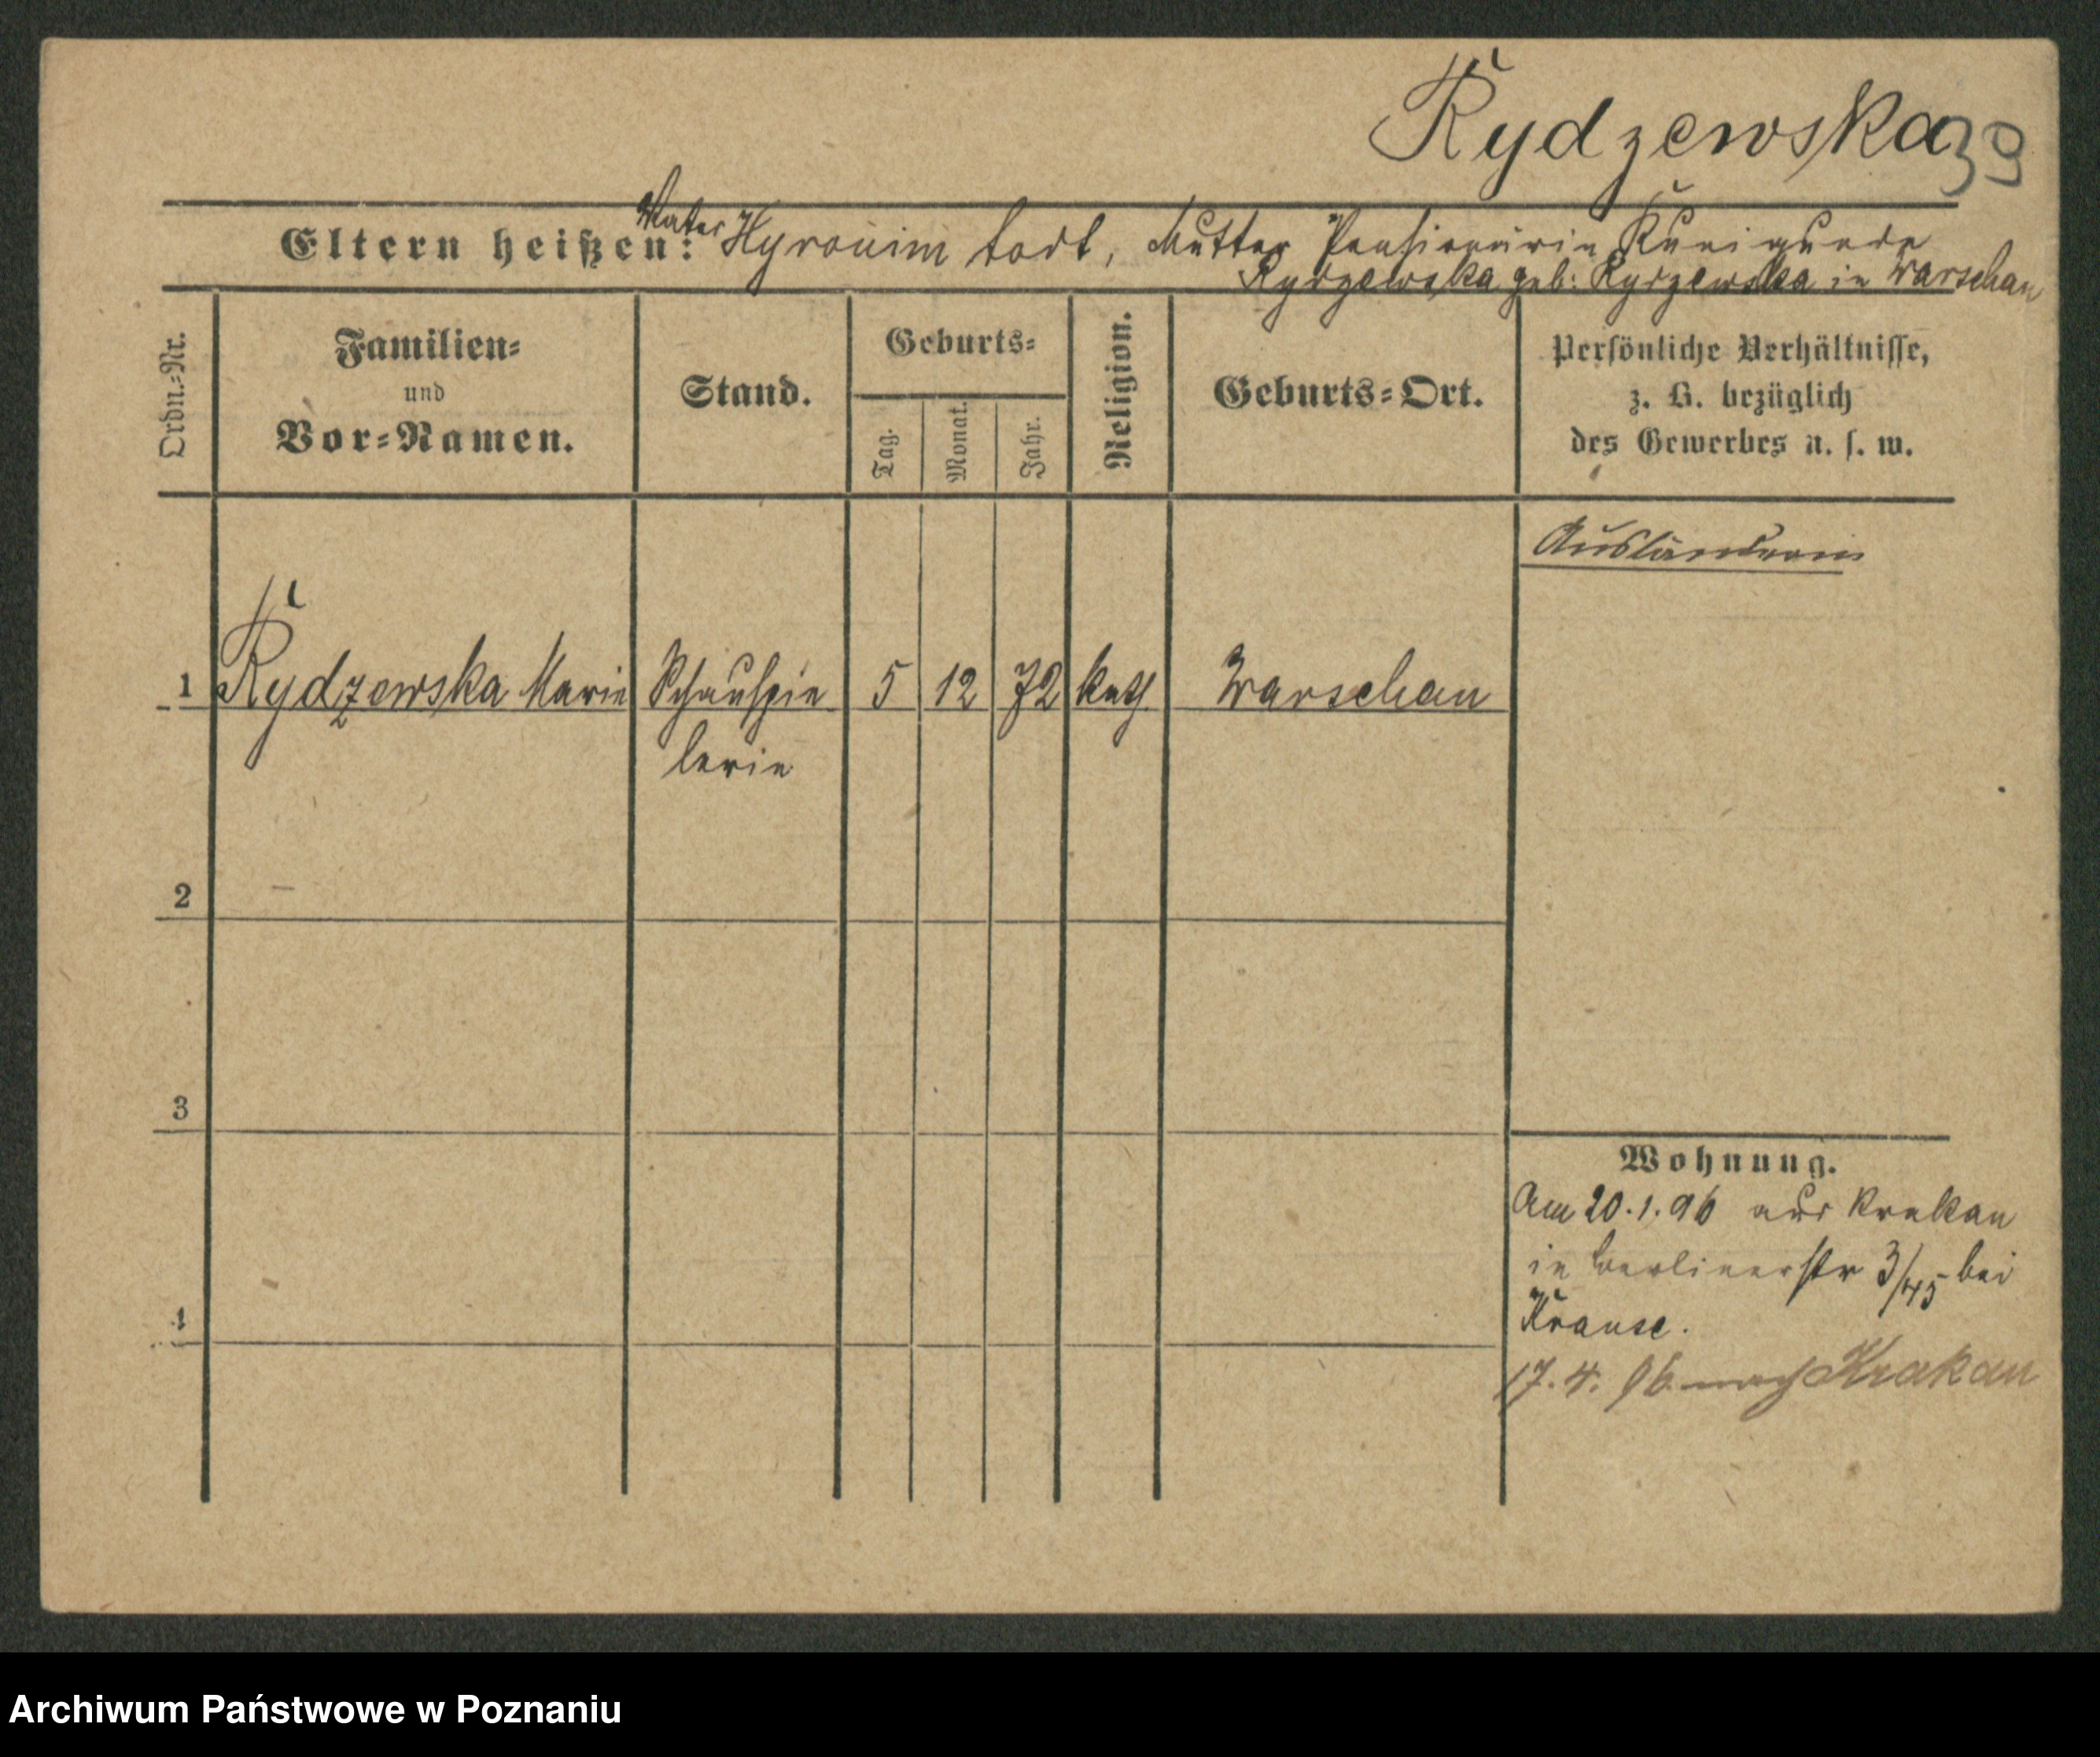 Rydzewska 39
Eltern heißen: Vater Hyronim todt, Mutter Pensionärin Kunigunde
Rydzewska geb: Rydzewska in Warschau
Ordn.-Nr.
Familien-
und
Vor-Namen.
Stand.
Geburts-
Tag.
Monat.
Jahr.
Religion.
Geburts-Ort.
Persönliche Verhältnisse,
z. B. bezüglich
des Gewerbes u. s. w.
Ausländerin
1 Rydzewska Marie Schauspie 5 12 72 kath. Warschau
lerin
2
3
4
Wohnung.
Am 20.1.96 aus Krakau
in Berlinerstr 3/45 bei
Krause.
17.4.96 nach Krakau
Archiwum Państwowe w Poznaniu